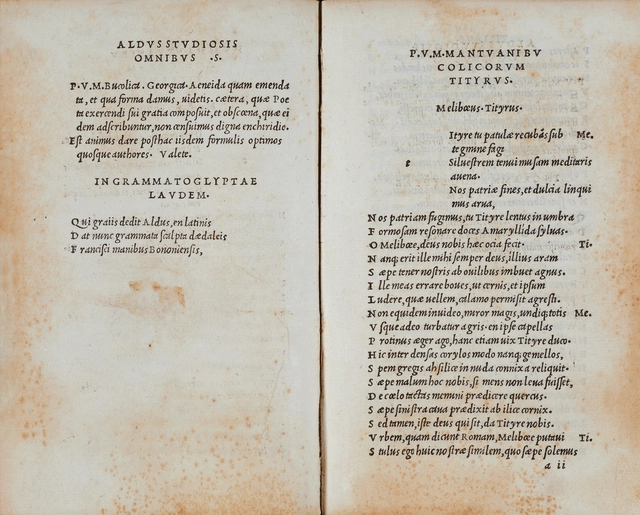 ALDVS STVDIOSIS
OMNIBVS .S.
P.V.M. Bucolica. Georgica. Aeneida quam emenda
ta, et qua forma damus, uidetis. cætera, quæ Poe
ta exercendi sui gratia composuit, et obscœna, quæ ei
dem adscribuntur, non censuimus digna enchiridio.
Est animus dare posthac iisdem formulis optimos
quosque authores. Valete.
IN GRAMMATOGLYPTAE
LAVDEM.
Qui graiis dedit Aldus, en latinis
Dat nunc grammata sculpta dædaleis
Francisci manibus Bononiensis,
P.V.M. MANTVANI BV
COLICORVM
TITYRVS.
Melibœus. Tityrus.
Ityre tu patulæ recubãs sub Me.
tegmine fagi
t Siluestrem tenui musam meditaris
auena.
Nos patriæ fines, et dulcia linqui
mus arua,
Nos patriam fugimus, tu Tityre lentus in umbra
Formosam resonare doces Amaryllida syluas.
O Melibœe, deus nobis hæc ocia fecit. Ti.
Nanq; erit ille mihi semper deus, illius aram
Sæpe tener nostris ab ouilibus imbuet agnus.
Ille meas errare boues, ut cernis, et ipsum
Ludere, quæ uellem, calamo permisit agresti.
Non equidem inuideo, miror magis, undiq; totis Me.
Vsque adeo turbatur agris. en ipse capellas
Protinus æger ago, hanc etiam uix Tityre duco.
Hic inter densas corylos modo nanq; gemellos,
Spem gregis ah silice in nuda connixa reliquit.
Sæpe malum hoc nobis, si mens non leua fuisset,
De cœlo tactas memini prædicere quercus.
Sæpe sinistra caua prædixit ab ilice cornix.
Sed tamen, iste deus qui sit, da Tityre nobis.
Vrbem, quam dicunt Romam, Melibœe putaui Ti.
Stultus ego huic nostræ similem, quo sæpe solemus
a ii